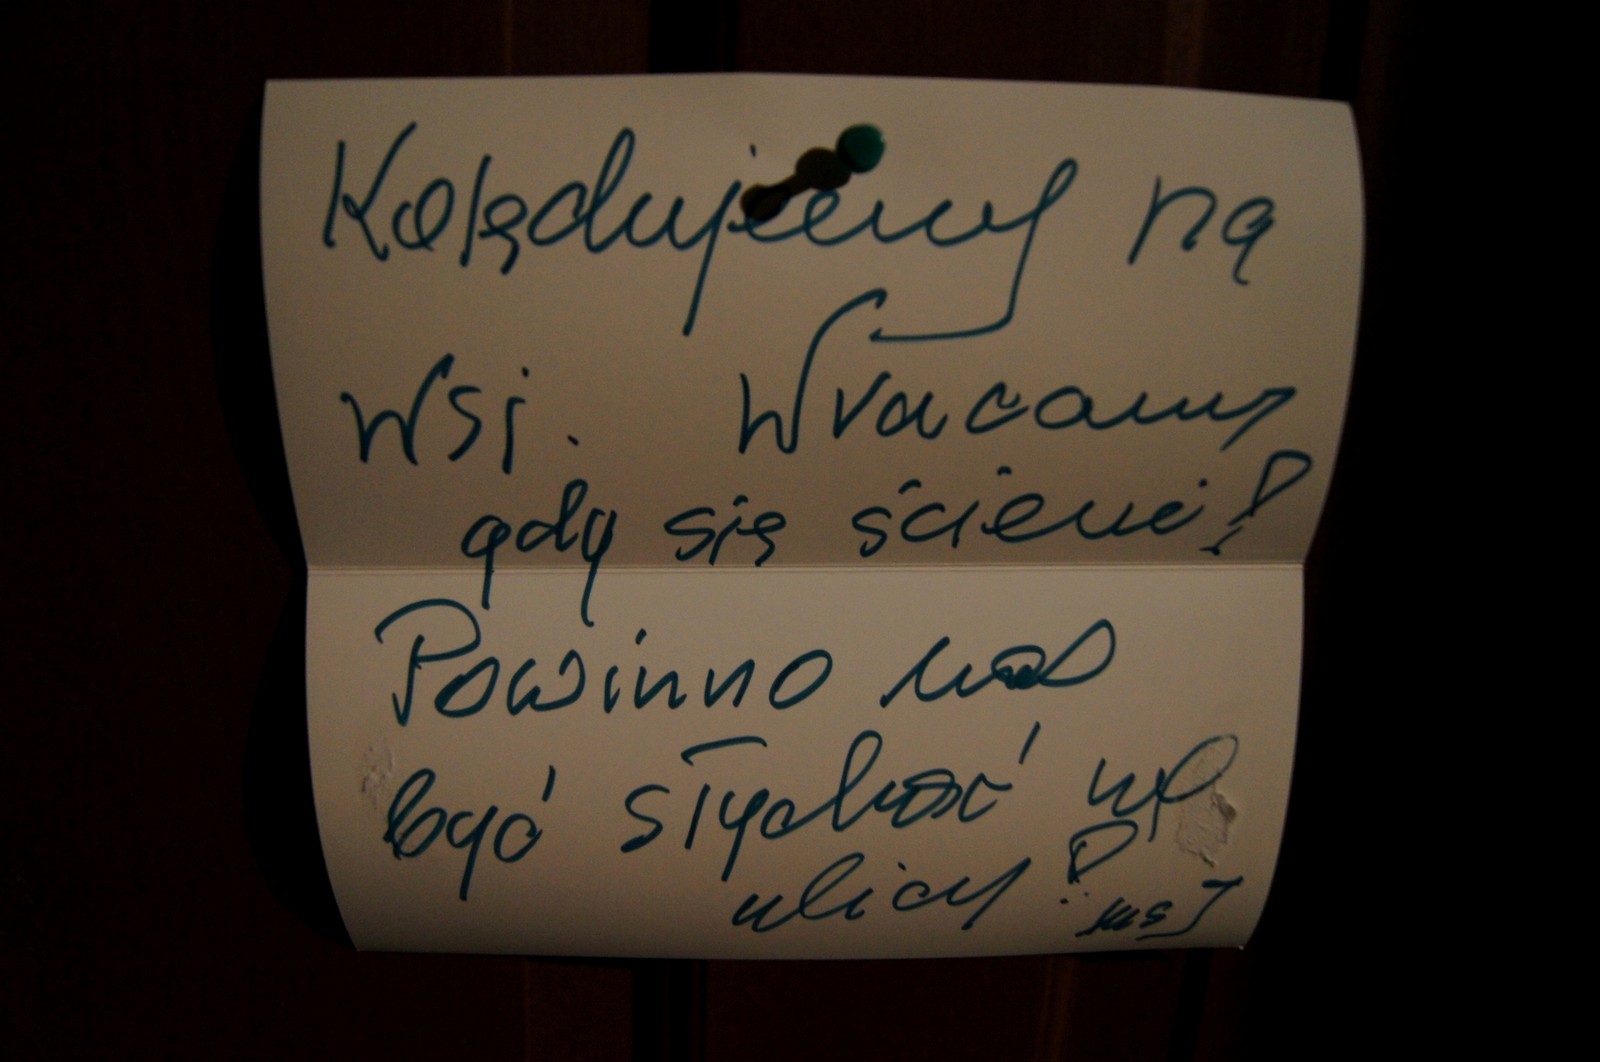 Kolędujemy na
wsi. Wracamy
gdy się ściemi!
Powinno nas
być słychać na
ulicy!